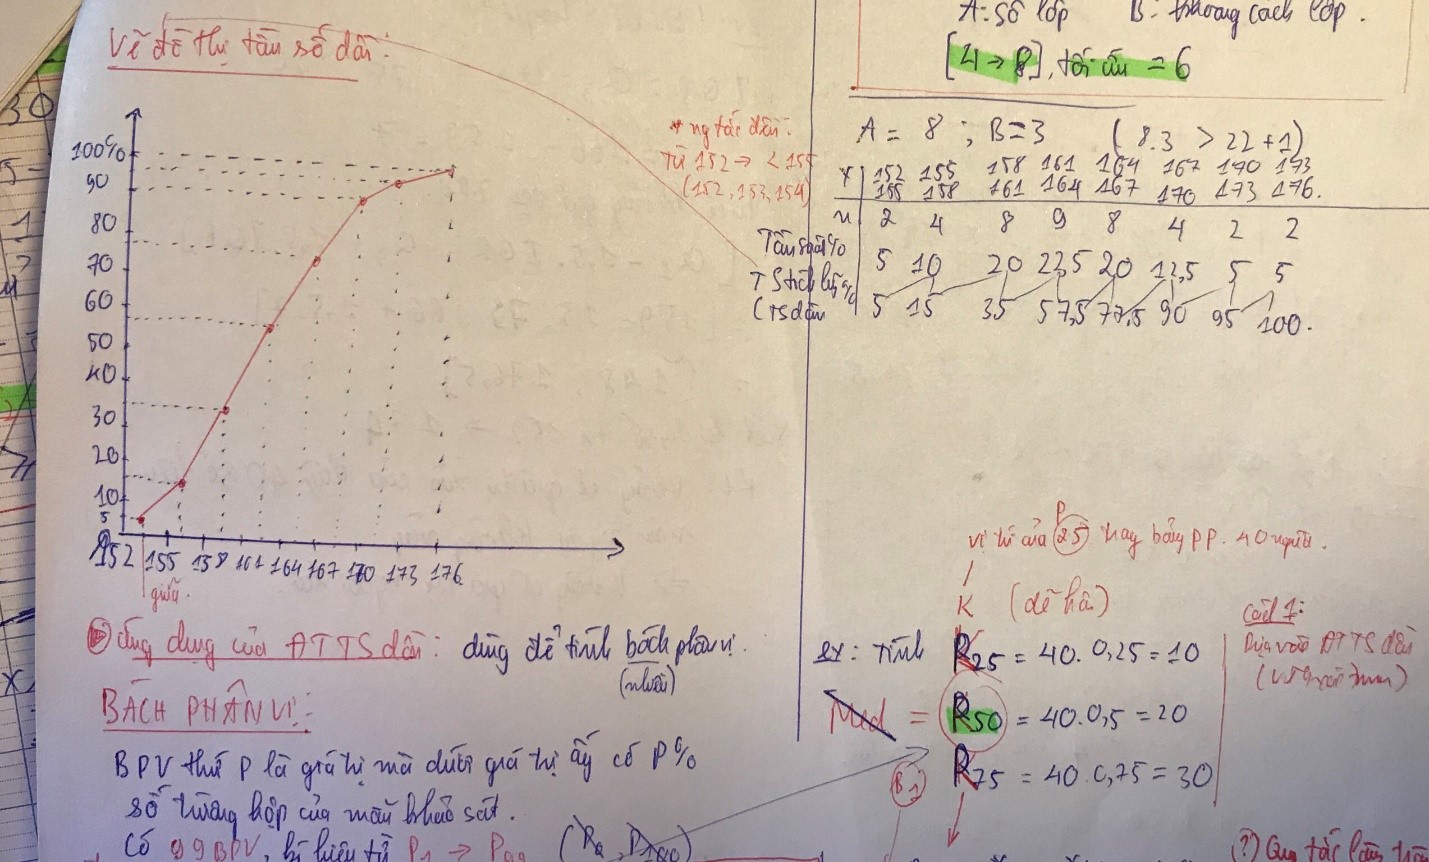 Vẽ đồ thị tần số dồn:
100%
90
80
70
60
50
40
30
20
10
5
152 155 158 161 164 167 170 173 176
giữa.
* ng tắc đếm:
Từ 152 → < 155
(152, 153, 154)
Ứng dụng của ĐTTS dồn: dùng để tính bách phân vị.
(nhiều)
BÁCH PHÂN VỊ:
BPV thứ P là giá trị mà dưới giá trị ấy có P%
số trường hợp của mẫu khảo sát.
Có 99 BPV, kí hiệu từ P1 → P99
A: số lớp B: khoảng cách lớp.
[4 → 8], tối ưu = 6
A = 8 ; B = 3 (8.3 > 22 + 1)
152 155 158 161 164 167 170 173
155 158 161 164 167 170 173 176.
n 2 4 8 9 8 4 2 2
Tần suất% 5 10 20 22,5 20 12,5 5 5
TS tích lũy% 5 15 35 57,5 77,5 90 95 100.
(TS dồn
vị trí của P25 trong bảng PP. 40 người.
K
ex: Tính R25 = 40. 0,25 = 10
Med = R50 = 40. 0,5 = 20
R75 = 40. 0,75 = 30
Cách 1:
Dựa vào ĐTTS dồn
(?) Quy tắc làm tròn